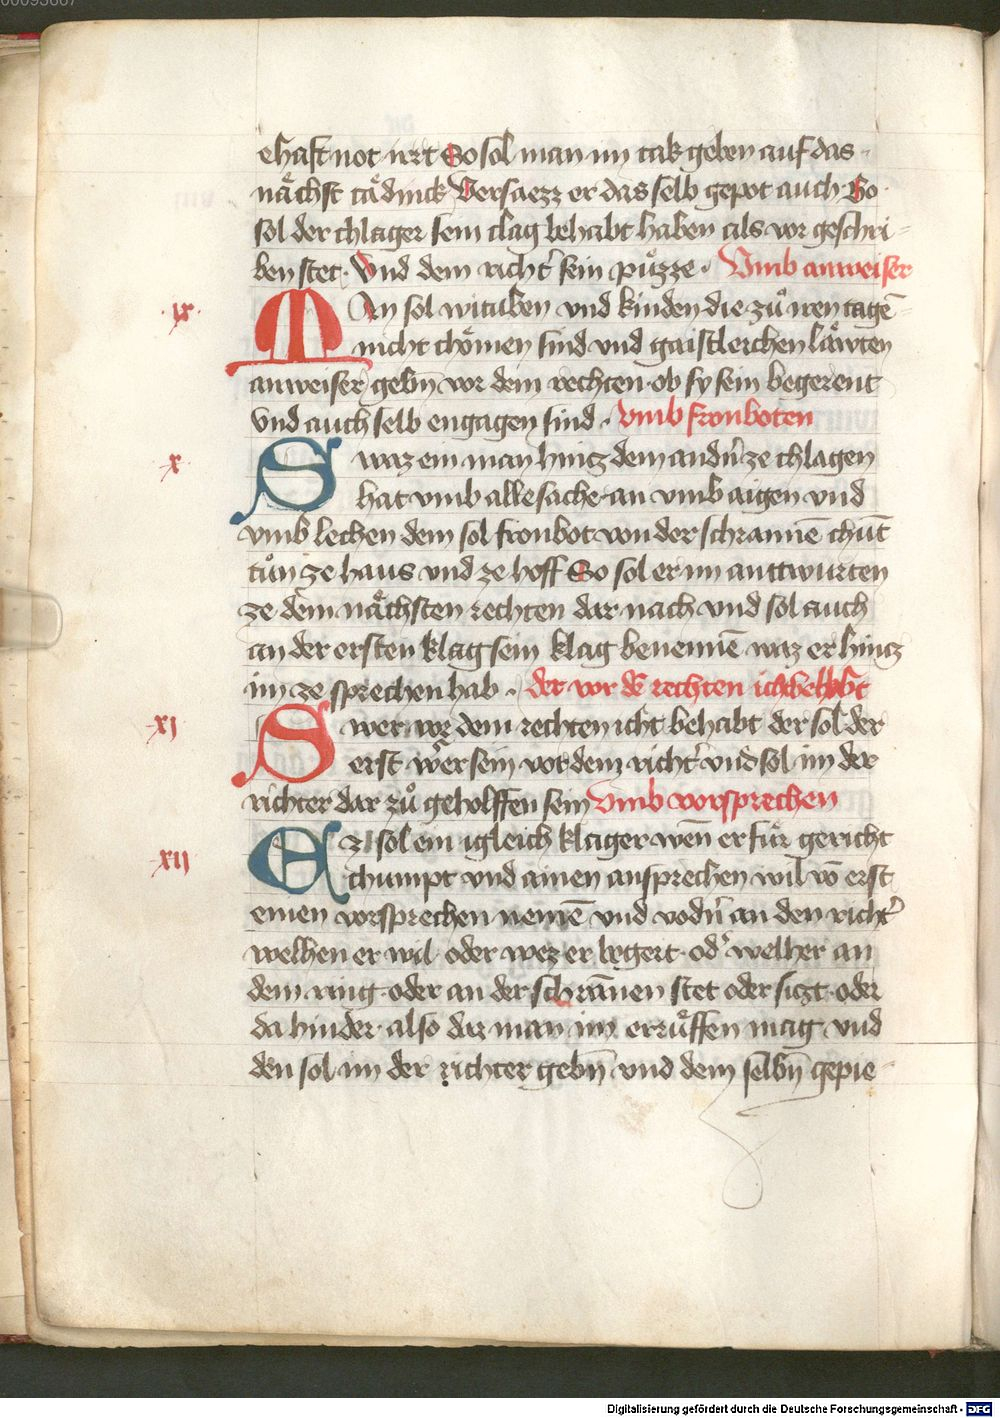 ehaft not irrt So sol man im tak geben auf das
nächst tädinck Versaezz er das selb gepot auch So
sol der chlager sein clag behabt haben als vor geschri
ben stet · Und dem richt᷑ sein půzze · Umb anweiser
ix MAn sol wituben vnd kinden die zů iren tagē
nicht chömen sind vnd gaistlerchen läwten
anweiser gebn̄ vor dem rechten ob sy sein begerent
Vnd auch selb engagen sind · Vmb fronboten
x Swaz ein man hincz dem andn̄ ze chlagen
hat vmb alle sache an vmb aigen vnd
vmb lechen dem sol fronbot von der schrannē chūt
tůn ze haus vnd ze hoff So sol er im anttwurten
ze dem nächsten rechten dar nach vnd sol auch
an der ersten klag sein klag benennē waz er hincz
im ze sprechen hab · der vor dē rechten icht behabt
xi Swer vor dem rechten icht behabt der sol der
erst wer sein vor dem richt᷑ vnd sol im der
richter dar zů geholffen sein Vmb vorsprechen
xii Ez sol ein igleich klager wen̄ er für gericht
chumpt vnd ainen ansprechen wil vō erst
einen vorsprechen nemē vnd vodn̄ an den richt᷑
welhen er wil · oder wez er begert · od᷑ welher an
dem ring · oder an der schrānen stet oder siczt · oder
da hinder · also daz man im errüffen mag vnd
den sol im der richter gebn̄ vnd dem selbn̄ gepie
Digitalisierung gefördert durch die Deutsche Forschungsgemeinschaft - DFG